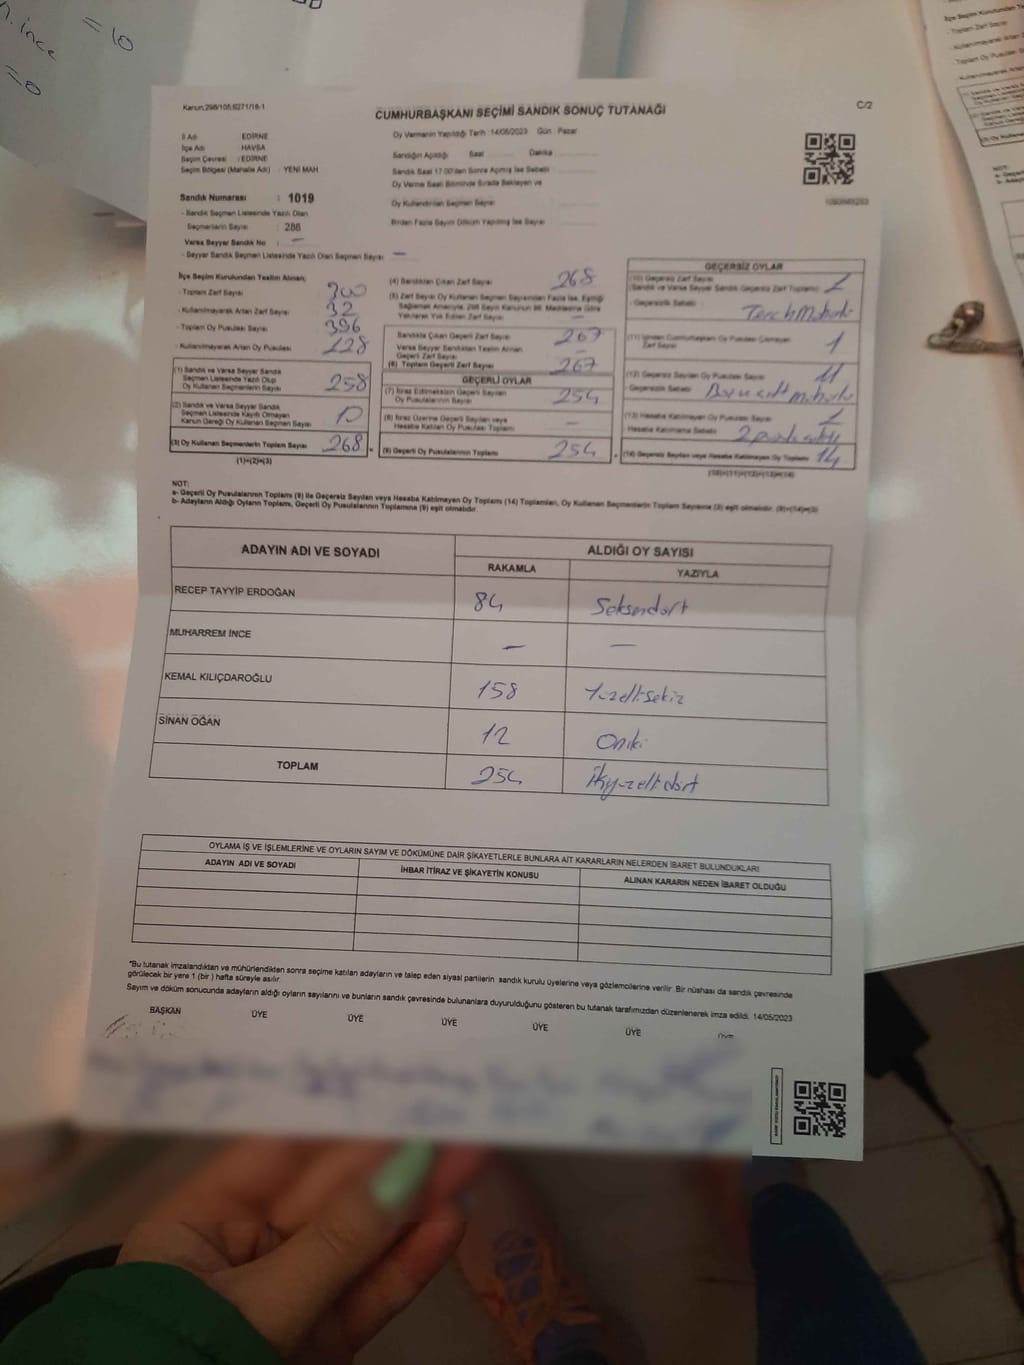 = 10
n. ince
= 0
Kanun;298/105,6271/18-1
CUMHURBAŞKANI SEÇİMİ SANDIK SONUÇ TUTANAĞI
C/2
İl Adı : EDİRNE
İlçe Adı : HAVSA
Seçim Çevresi : EDİRNE
Seçim Bölgesi (Mahalle Adı) : YENİ MAH.
Oy Vermenin Yapıldığı Tarih :14/05/2023 Gün : Pazar
Sandığın Açıldığı Saat ........ Dakika ........
Sandık Saat 17:00'den Sonra Açılmış İse Sebebi
Oy Verme Saati Bitiminde Sırada Bekleyen ve
Oy Kullandırılan Seçmen Sayısı
Birden Fazla Sayım Döküm Yapılmış İse Sayısı
Sandık Numarası : 1019
- Sandık Seçmen Listesinde Yazılı Olan
Seçmenlerin Sayısı : 286
Varsa Seyyar Sandık No : —
- Seyyar Sandık Seçmen Listesinde Yazılı Olan Seçmen Sayısı —
İlçe Seçim Kurulundan Teslim Alınan;
- Toplam Zarf Sayısı 300
- Kullanılmayarak Artan Zarf Sayısı 32
- Toplam Oy Pusulası Sayısı 396
- Kullanılmayarak Artan Oy Pusulası 128
(1) Sandık ve Varsa Seyyar Sandık
Seçmen Listesinde Yazılı Olup
Oy Kullanan Seçmenlerin Sayısı 258
(2) Sandık ve Varsa Seyyar Sandık
Seçmen Listesinde Kayıtlı Olmayan
Kanun Gereği Oy Kullanan Seçmen Sayısı 10
(3) Oy Kullanan Seçmenlerin Toplam Sayısı 268
(1)+(2)=(3)
(4) Sandıktan Çıkan Zarf Sayısı 268
(5) Zarf Sayısı Oy Kullanan Seçmen Sayısından Fazla İse, Eşitliği
Sağlamak Amacıyla, 298 Sayılı Kanunun 98. Maddesine Göre
Yakılarak Yok Edilen Zarf Sayısı —
Sandıkta Çıkan Geçerli Zarf Sayısı 267
Varsa Seyyar Sandıktan Teslim Alınan
Geçerli Zarf Sayısı —
(6) Toplam Geçerli Zarf Sayısı 267
GEÇERLİ OYLAR
(7) İtiraz Edilmeksizin Geçerli Sayılan
Oy Pusulalarının Sayısı 254
(8) İtiraz Üzerine Geçerli Sayılan veya
Hesaba Katılan Oy Pusulası Toplamı —
(9) Geçerli Oy Pusulalarının Toplamı 254
GEÇERSİZ OYLAR
(10) Geçersiz Zarf Sayısı
(Sandık ve Varsa Seyyar Sandık Geçersiz Zarf Toplamı)
- Geçersizlik Sebebi
(11) İçinden Cumhurbaşkanı Oy Pusulası Çıkmayan
Zarf Sayısı 1
(12) Geçersiz Sayılan Oy Pusulası Sayısı 11
Geçersizlik Sebebi
(13) Hesaba Katılmayan Oy Pusulası Sayısı
Hesaba Katılmama Sebebi
(14) Geçersiz Sayılan veya Hesaba Katılmayan Oy Toplamı 14
(10)+(11)+(12)+(13)=(14)
NOT:
a- Geçerli Oy Pusulalarının Toplamı (9) ile Geçersiz Sayılan veya Hesaba Katılmayan Oy Toplamı (14) Toplamları, Oy Kullanan Seçmenlerin Toplam Sayısına (3) eşit olmalıdır. (9)+(14)=(3)
b- Adayların Aldığı Oyların Toplamı, Geçerli Oy Pusulalarının Toplamına (9) eşit olmalıdır.
ADAYIN ADI VE SOYADI ALDIĞI OY SAYISI
RAKAMLA YAZIYLA
RECEP TAYYİP ERDOĞAN 84 Seksendört
MUHARREM İNCE — —
KEMAL KILIÇDAROĞLU 158 Yüzellisekiz
SİNAN OĞAN 12 Oniki
TOPLAM 254 İkiyüzellidört
OYLAMA İŞ VE İŞLEMLERİNE VE OYLARIN SAYIM VE DÖKÜMÜNE DAİR ŞİKAYETLERLE BUNLARA AİT KARARLARIN NELERDEN İBARET BULUNDUKLARI
ADAYIN ADI VE SOYADI İHBAR İTİRAZ VE ŞİKAYETİN KONUSU ALINAN KARARIN NEDEN İBARET OLDUĞU
*Bu tutanak imzalandıktan ve mühürlendikten sonra seçime katılan adayların ve talep eden siyasi partilerin sandık kurulu üyelerine veya gözlemcilerine verilir. Bir nüshası da sandık çevresinde
görülecek bir yere 1 (bir ) hafta süreyle asılır.
Sayım ve döküm sonucunda adayların aldığı oyların sayılarını ve bunların sandık çevresinde bulunanlara duyurulduğunu gösteren bu tutanak tarafımızdan düzenlenerek imza edildi. 14/05/2023
BAŞKAN ÜYE ÜYE ÜYE ÜYE ÜYE ÜYE